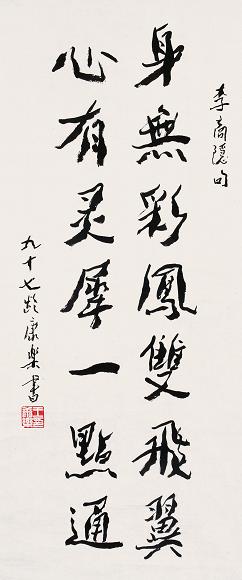 李商隱句
身無彩鳳雙飛翼
心有灵犀一點通
九十七齡康樂書